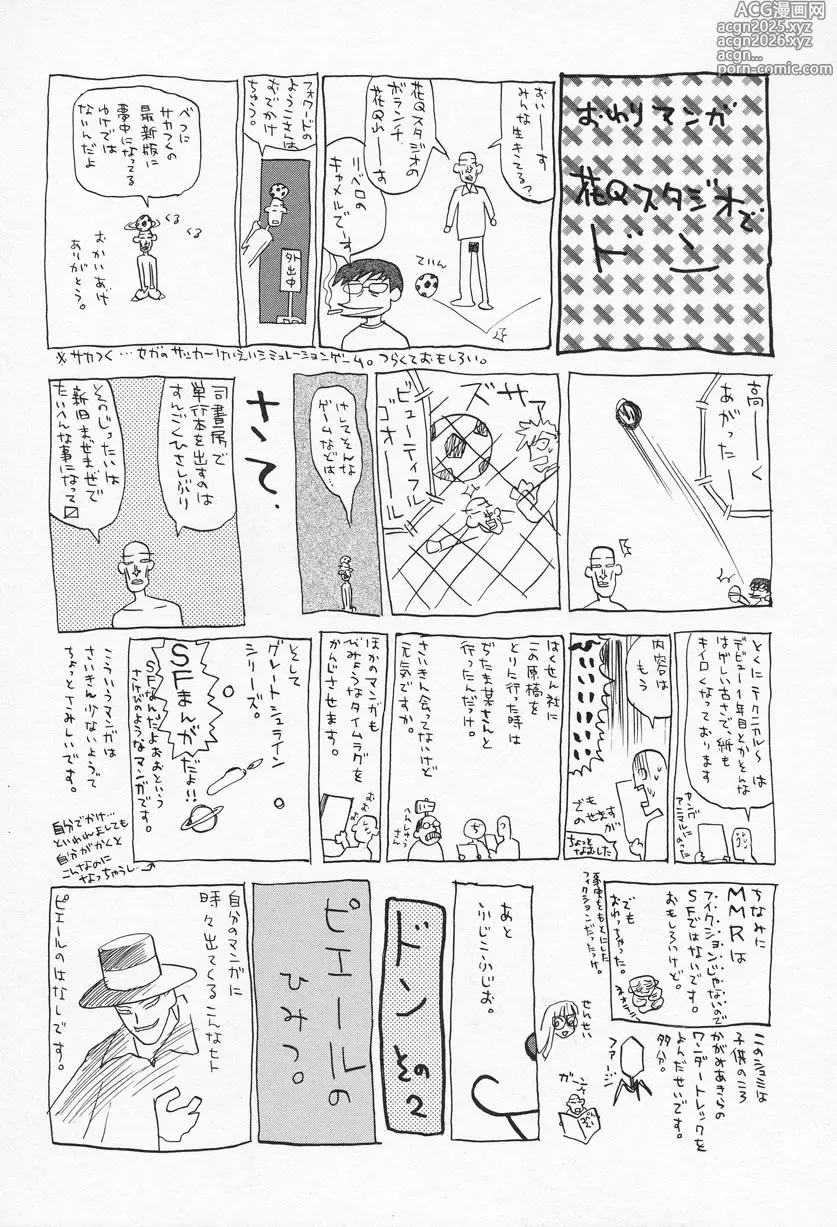 ACG漫画网
acgn2025.xyz
acgn2026.xyz
porn-comic.com
おわりマンガ
花Qスタジオで
ドン
おぃーーす
みんな生きてる?
花Qスタジオの
ボランチ、
花Q山ーす
リベロの
キャメルです
てぃん
フォワードの
ようこさんは
おでかけ
ちゅう。
外出中
べつに
サカつくの
最新版に
夢中になってる
わけでは
ないんだよ
くる
くる
おかいあげ
ありがとう。
※サカつく…セガのサッカーけいえいシミュレーションゲーム。つらくておもしろい。
高ーーく
あがったーー
ズサァ
ビューティフル
ゴオール
けしてそんな
ゲームなどは…
さて、
司書房で
単行本を出すのは
すんごくひさしぶり
そのじったいは
新旧まぜまぜで
たいへんな事になって〼
とくにテクニカル〜は
デビュー1年目とかそんな
はげしい古さで、紙も
キイロくなっております
ヤング
アニマルにのった
内容は
もう
でも
のせますが
ちょっと
なおしました
はくせん社に
この原稿を
とりに行った時は
ぢたま某さんと
行ったんだっけ。
さいきん会ってないけど
元気ですか。
へんしゅう
さん
ほかのマンガも
びみょうなタイムラグを
かんじさせます。
おお
そして
グレートシュライン
シリーズ。
SFまんがだよ!!
SFなんだよおおという
さけびのようなマンガです。
こういうマンガは
さいきん少ないようで
ちょっとさみしいです。
自分でかけ…
といわれましても
自分がかくと
こんなのに
なっちゃうし…
ちなみに
MMRは
フィクションじゃないので
SFではないです。
おもしろいけど。
でも
おわっちゃった。
事実をもとにした
フィクションだったっけ。
このシュミは
子供のころ
かがみあきらの
ワンダートレックを
よんだせいです。
多分。
せんせい
ファー…
ガーン
あと
ふじこふじお。
ドン
その2
ピエールの
ひみつ。
自分のマンガに
時々出てくるこんなヒト
ピエールのはなしです。